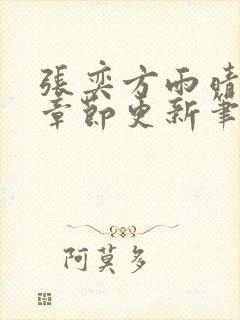 張奕方雨晴
章節更新筆
阿莫多